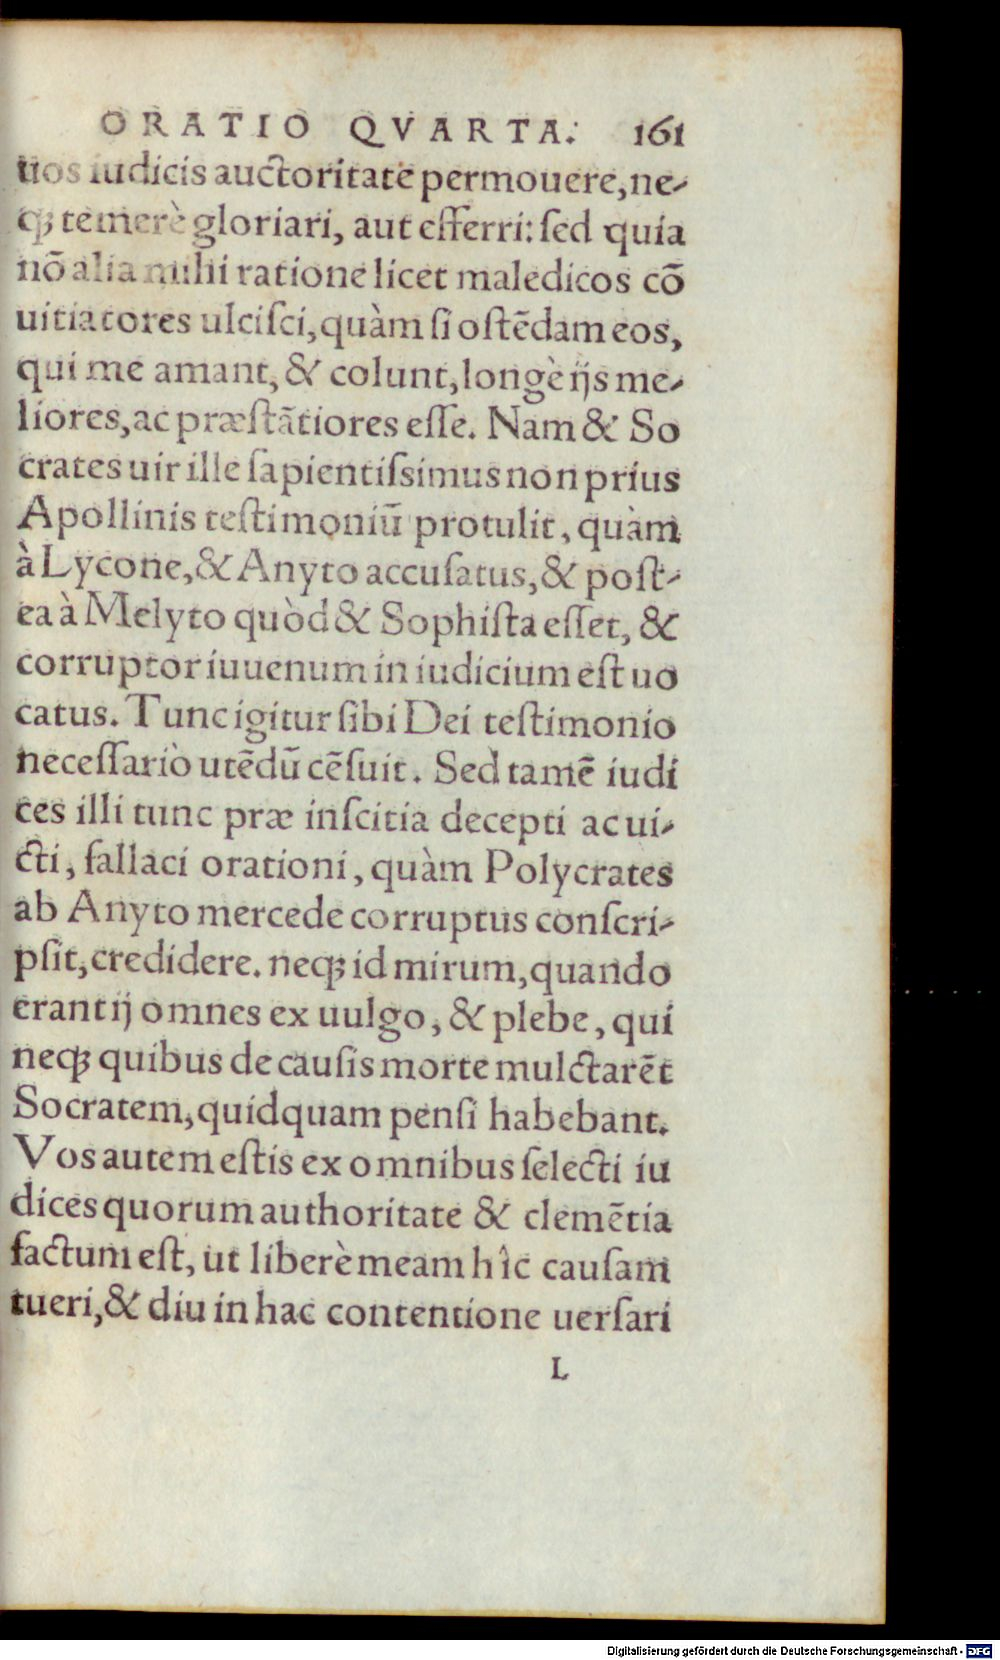 ORATIO QVARTA. 161
uos iudicis auctoritate permouere, ne-
qꝫ temerè gloriari, aut efferri: sed quia
nō alia mihi ratione licet maledicos cō
uitiatores ulcisci, quàm si ostēdam eos,
qui me amant, & colunt, longè ijs me-
liores, ac præstātiores esse. Nam & So
crates uir ille sapientissimus non prius
Apollinis testimoniū protulit, quàm
à Lycone, & Anyto accusatus, & post-
ea à Melyto quòd & Sophista esset, &
corruptor iuuenum in iudicium est uo
catus. Tunc igitur sibi Dei testimonio
necessariò utēdū cēsuit. Sed tamē iudi
ces illi tunc præ inscitia decepti ac ui-
cti, fallaci orationi, quàm Polycrates
ab Anyto mercede corruptus conscri-
psit, credidere. neqꝫ id mirum, quando
erant ij omnes ex uulgo, & plebe, qui
neqꝫ quibus de causis morte mulctarēt
Socratem, quidquam pensi habebant.
Vos autem estis ex omnibus selecti iu
dices quorum authoritate & clemētia
factum est, ut liberè meam hîc causam
tueri, & diu in hac contentione uersari
L
Digitalisierung gefördert durch die Deutsche Forschungsgemeinschaft - DFG